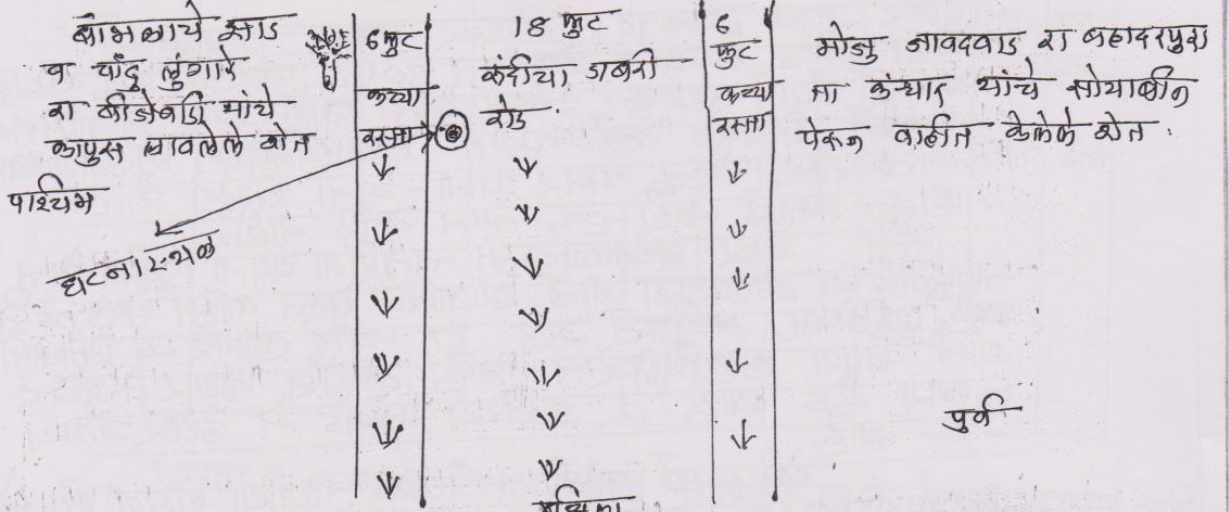 बाभळाचे झाड
व चांदु लुंगारे
रा बीजेवाडी यांचे
कापुस लावलेले शेत
पश्चिम
घटनास्थळ
6 फुट
कच्चा
रस्ता
18 फुट
रुंदीचा डांबरी
रोड
6
फुट
कच्चा
रस्ता
मोजु जावदवाड रा बहादरपुरा
ता कंन्धार यांचे सोयाबीन
पेरुन वाहीत केलेले शेत.
पुर्व